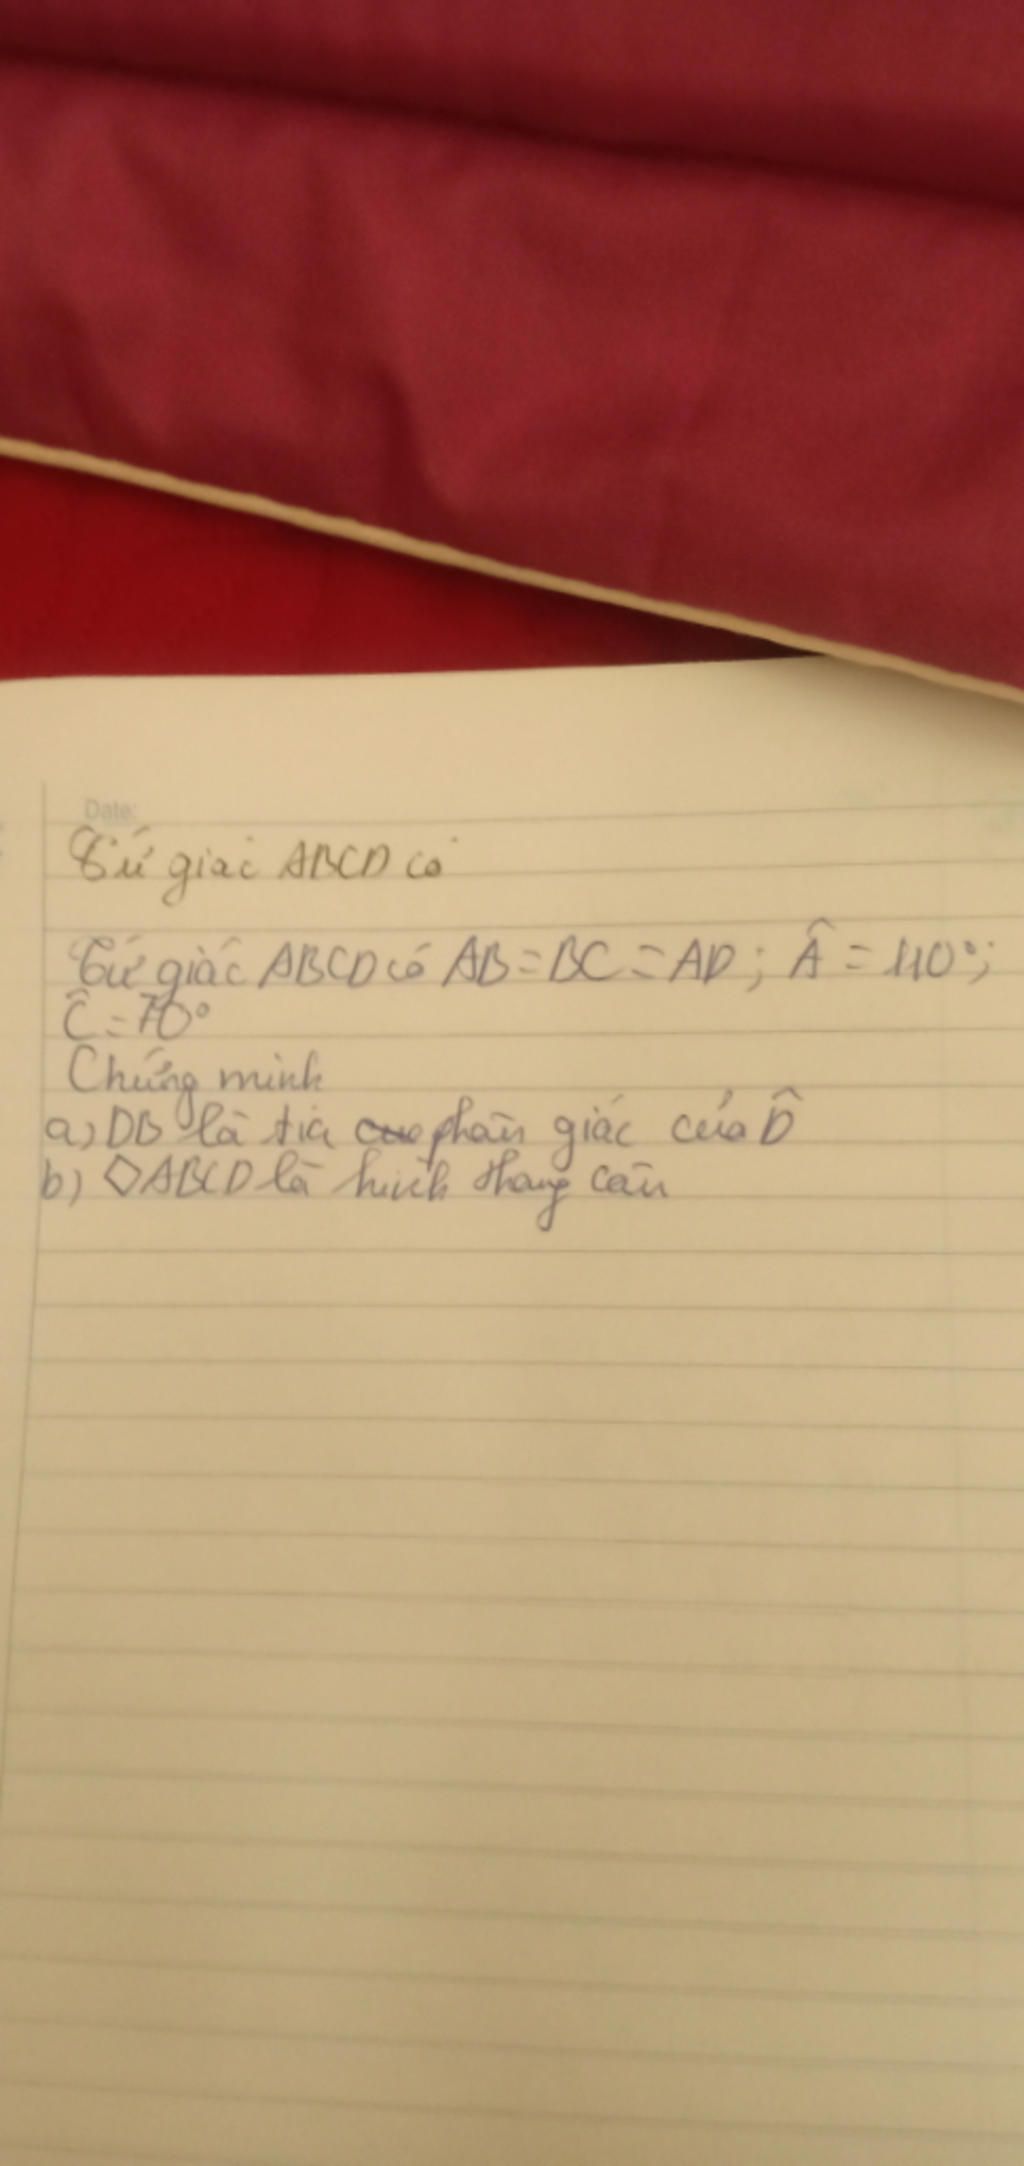 Date:
Tứ giác ABCD có
Tứ giác ABCD có AB = BC = AD ; Â = 110°;
Ĉ = 70°
Chứng minh
a) DB là tia phân giác của D̂
b) ◇ABCD là hình thang cân